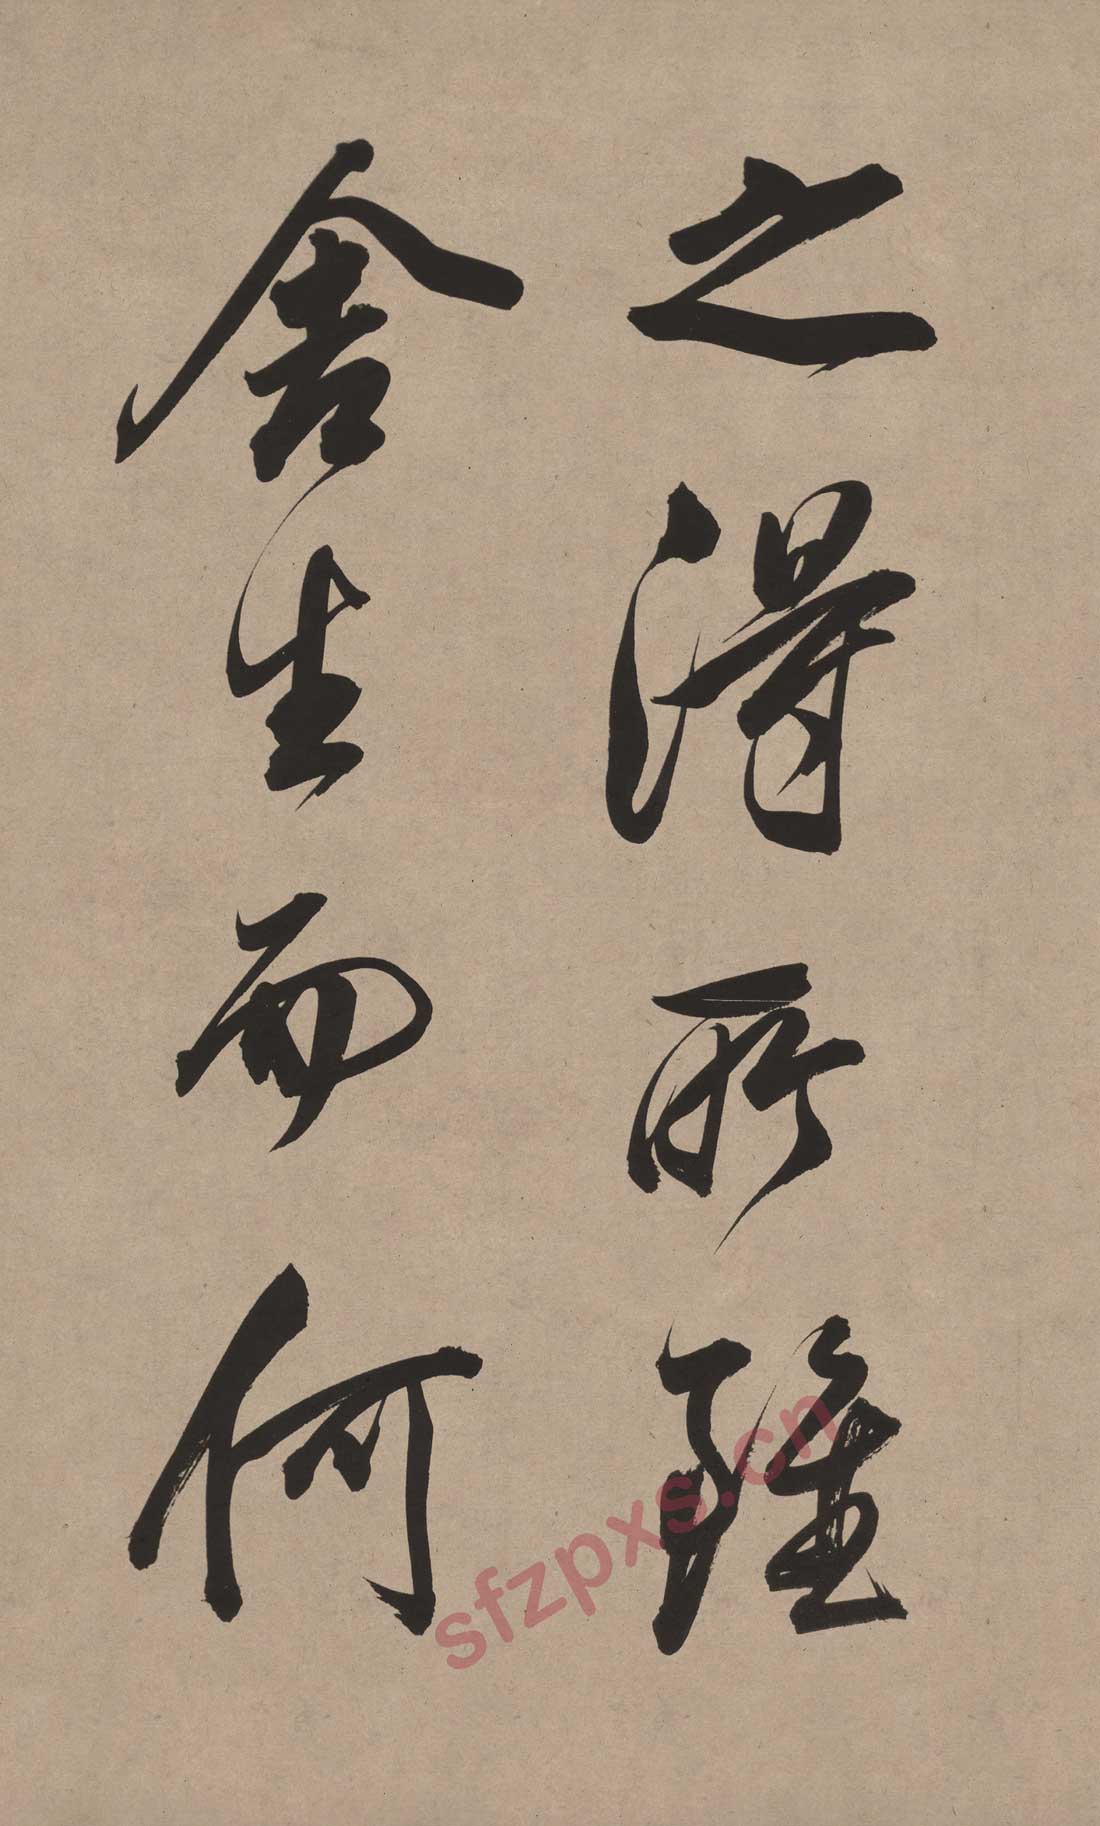 之得所雖
舍生而何
sfzpxs.cn